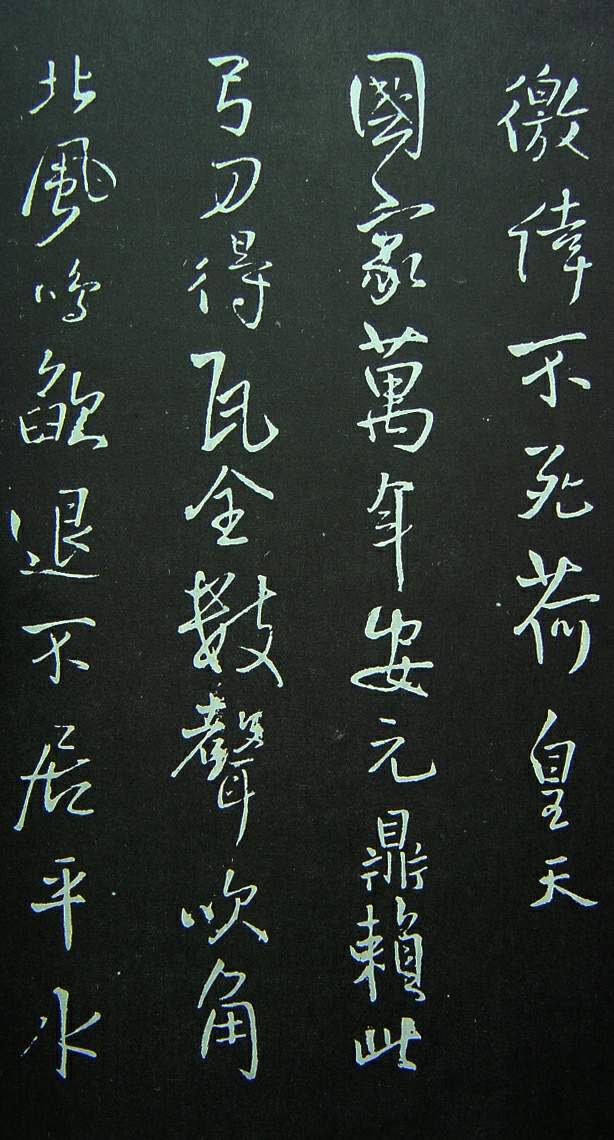 儌倖不死荷皇天
國家萬年安元鼎賴此
弓刀得瓦全數聲吹角
北風鳴敵退不居平水